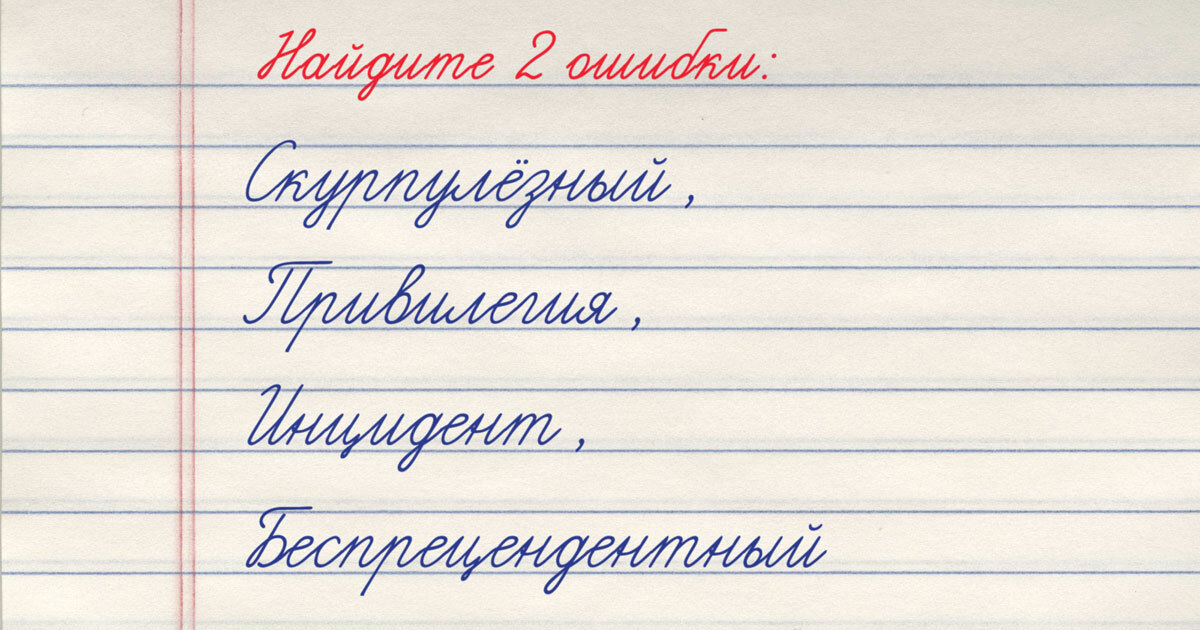 Найдите 2 ошибки:
Скурпулёзный,
Привилегия,
Инцидент,
Беспрецендентный